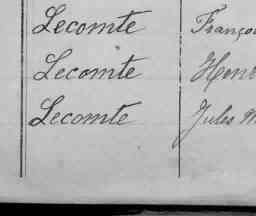 Lecomte Franço
Lecomte Hen
Lecomte Jules M